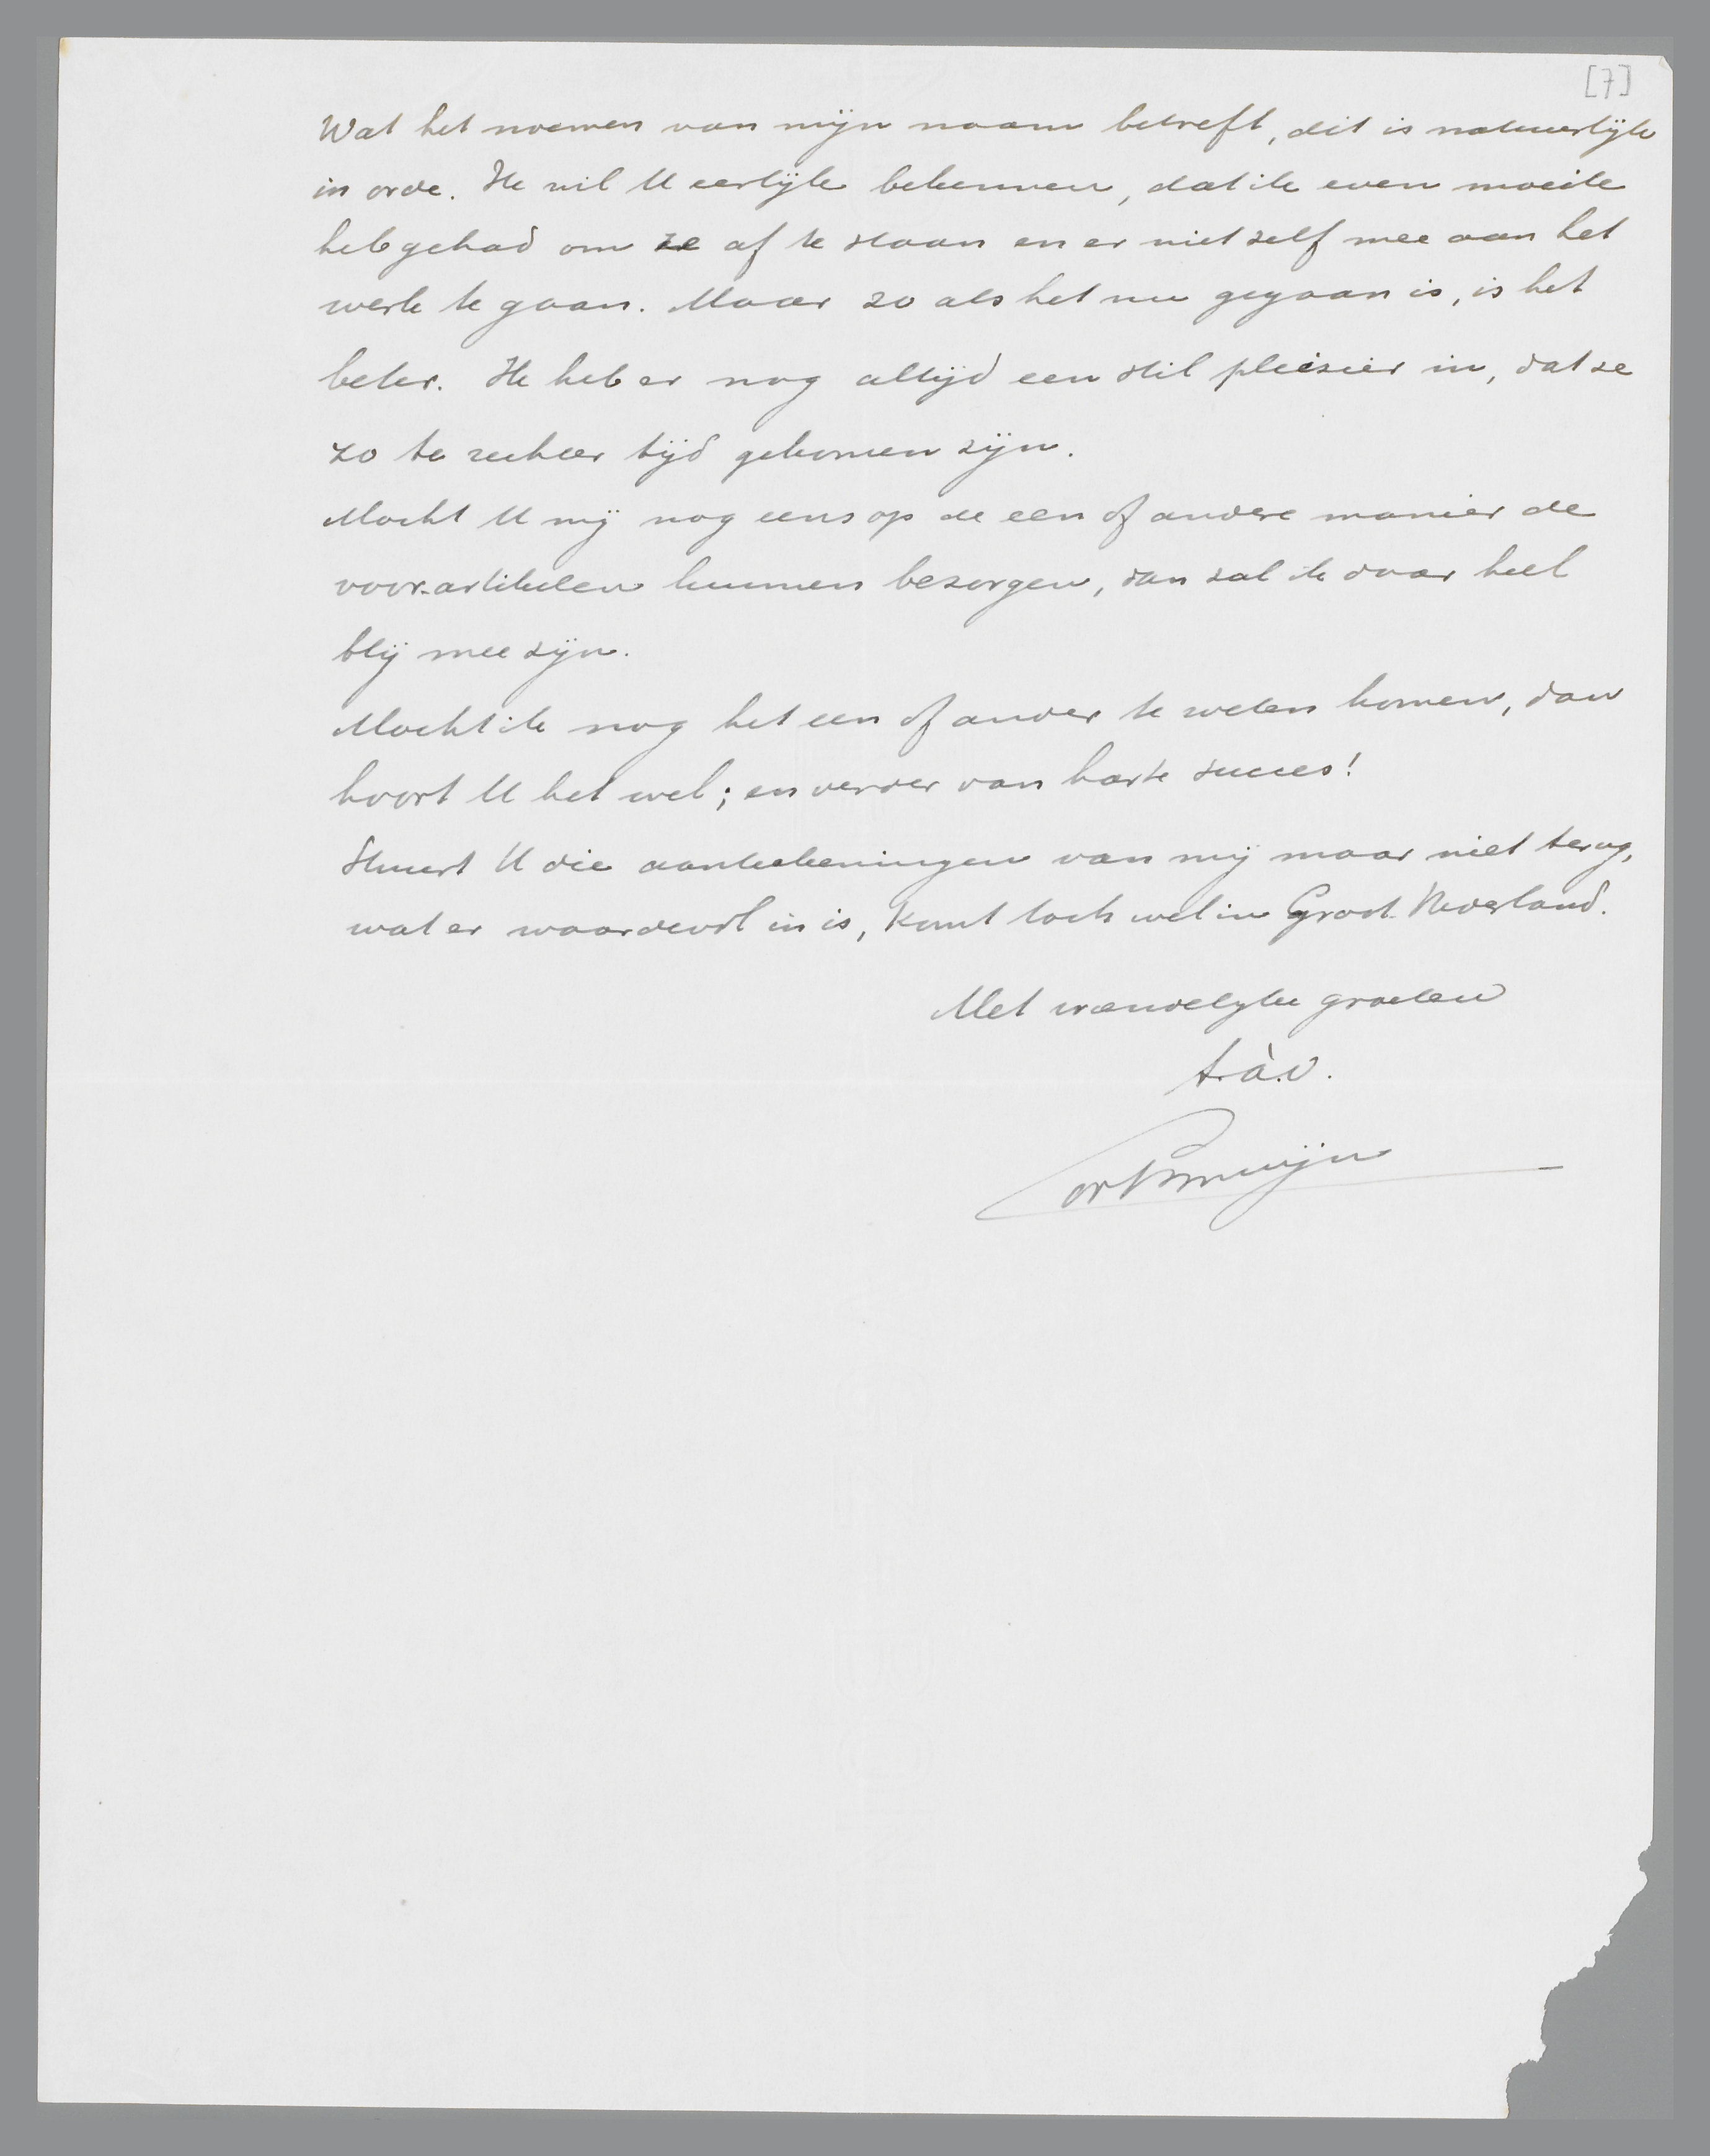 [7]
Wat het noemen van mijn naam betreft, dit is natuurlijk
in orde. Ik wil U eerlijk bekennen, dat ik even moeite
heb gehad om ze af te staan en er niet zelf mee aan het
werk te gaan. Maar zo als het nu gegaan is, is het
beter. Ik heb er nog altijd een stil pleisier in, dat ze
zo te rechter tijd gekomen zijn.
Mocht U mij nog eens op de een of andere manier de
voor-artikelen kunnen bezorgen, dan zal ik daar heel
blij mee zijn.
Mocht ik nog het een of ander te weten komen, dan
hoort U het wel; en verder van harte succes!
Stuurt U die aantekeningen van mij maar niet terug,
wat er waardevol in is, komt toch wel in Groot Nederland.
Met vriendelijke groeten
t.à.v.
Cor Bruijn